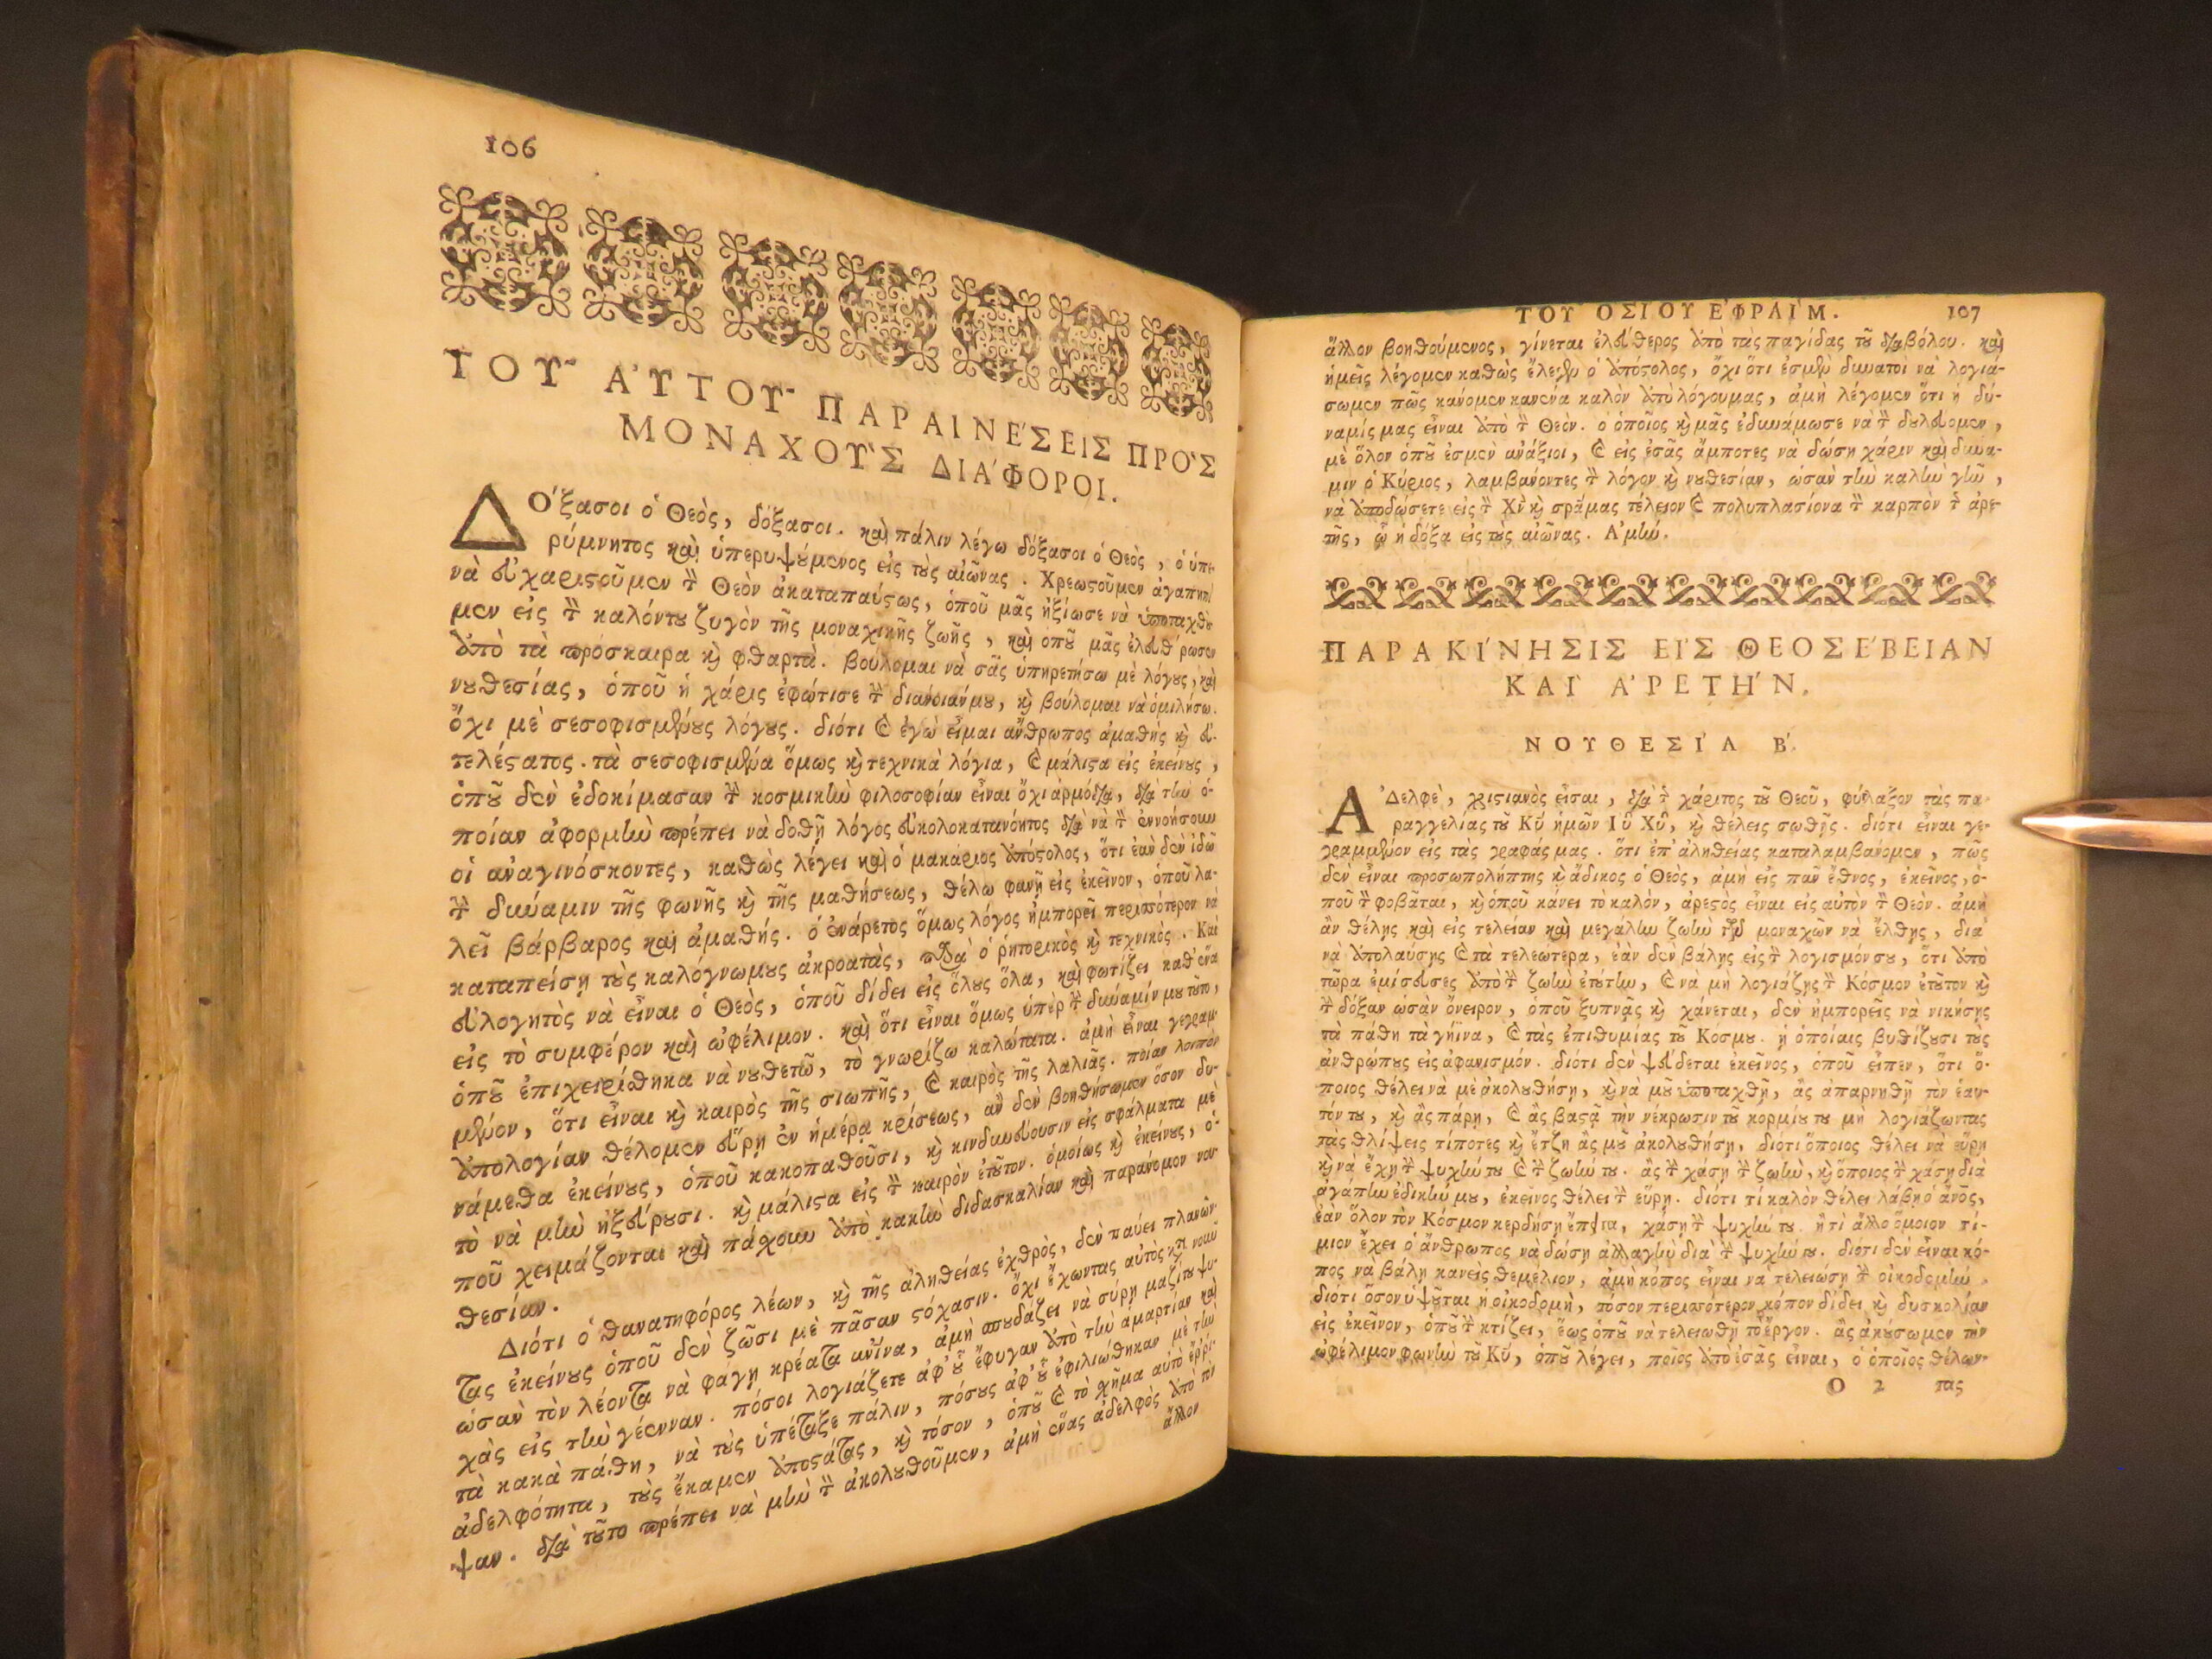 106
ΤΟΥ͂ ΑὙΤΟΥ͂ ΠΑΡΑΙΝΕ΄ΣΕΙΣ ΠΡΟ`Σ
ΜΟΝΑΧΟΥ`Σ ΔΙΑ΄ΦΟΡΟΙ.
ΔΟ΄ξασοι ὁ Θεὸς, δόξασοι. καὶ πάλιν λέγω δόξασοι ὁ Θεὸς, ὁ ὑπε-
ρύμνητος καὶ ὑπερυψούμενος εἰς τοὺς αἰῶνας. Χρεωστοῦμεν ἀγαπητοὶ
νὰ εὐχαριστοῦμεν τὸν Θεὸν ἀκαταπαύστως, ὁποῦ μᾶς ἠξίωσε νὰ ὑποταχθοῦ-
μεν εἰς τὸν καλόντου ζυγὸν τῆς μοναχικῆς ζωῆς, καὶ οποῦ μᾶς ἐλευθέρωσεν
ἀπὸ τὰ πρόσκαιρα καὶ φθαρτὰ. βούλομαι νὰ σᾶς ὑπηρετήσω μὲ λόγους, καὶ
νουθεσίας, ὁποῦ ἡ χάρις ἐφώτισε τὴν διανόιανμου, καὶ βούλομαι νὰ ὁμιλήσω.
ὄχι μὲ σεσοφισμένους λόγους. διότι καὶ ἐγὼ εἶμαι ἄνθρωπος ἀμαθὴς καὶ εὐ-
τελέστατος. τὰ σεσοφισμένα ὅμως καὶ τεχνικὰ λόγια, καὶ μάλιστα εἰς ἐκείνους,
ὁποῦ δὲν ἐδοκίμασαν τὴν κοσμικὴν φιλοσοφίαν εἶναι ὄχι ἁρμόδια, διὰ τὴν ὁ-
ποίαν ἀφορμὴν πρέπει νὰ δοθῇ λόγος εὐκολοκατανόητος διὰ νὰ τὸν ἐννοήσουν
οἱ αναγινόσκοντες, καθὼς λέγει καὶ ὁ μακάριος ἀπόστολος, ὅτι ἐὰν δὲν ἰδῶ
τὴν δύναμιν τῆς φωνῆς καὶ τῆς μαθήσεως, θέλω φανῇ εἰς ἐκεῖνον, ὁποῦ λα-
λεῖ βάρβαρος καὶ ἀμαθής. ὁ ἐνάρετος ὅμως λόγος ἠμπορεῖ περισσότερον νὰ
καταπείσῃ τοὺς καλόγνωμους ἀκροατὰς, παρὰ ὁ ῥητορικὸς καὶ τεχνικὸς. Καὶ
εὐλογητὸς νὰ εἶναι ὁ Θεὸς, ὁποῦ δίδει εἰς ὅλους ὅλα, καὶ φωτίζει καθ᾽ ἕνα
εἰς τὸ συμφέρον καὶ ὠφέλιμον. καὶ ὅτι εἶναι ὅμως ὑπὲρ τὴν δύναμίν μου τοῦτο,
ὁποῦ ἐπιχειρίσθηκα νὰ νουθετῶ, τὸ γνωρίζω καλώτατα. ἀμὴ εἶναι γεγραμ-
μένον, ὅτι εἶναι καὶ καιρὸς τῆς σιωπῆς, καὶ καιρὸς τῆς λαλιᾶς. ποίαν λοιπὸν
ἀπολογίαν θέλομεν εὕρῃ ἐν ἡμέρᾳ κρίσεως, ἂν δὲν βοηθήσωμεν ὅσον δυ-
νάμεθα ἐκείνους, ὁποῦ κακοπαθοῦσι, καὶ κινδυνεύουσιν εἰς σφάλματα μὲ
τὸ νὰ μὴν ἠξεύρουσι. καὶ μάλιστα εἰς τὸν καιρὸν ἐτοῦτον. ὁμοίως καὶ ἐκείνους, ὁ-
ποῦ χειμάζονται καὶ πάχουν ἀπὸ κακὴν διδασκαλίαν καὶ παράνομον νου-
θεσίαν.
Διότι ὁ θανατηφόρος λέων, καὶ τῆς ἀληθείας ἐχθρὸς, δὲν παύει πλανῶν-
τας ἐκείνους ὁποῦ δὲν ζῶσι μὲ πᾶσαν στόχασιν. ὄχι ἔχωντας αὐτὸς κατὰ νοῦν
ὡσαν τὸν λέοντα νὰ φάγῃ κρέατα κτῖνα, ἀμὴ σπουδάζει νὰ σύρῃ μαζίτου ψυ-
χὰς εἰς τὴν γέενναν. πόσοι λογιάζετε ἀφ᾽ οὗ ἔφυγαν ἀπὸ τὴν ἁμαρτίαν καὶ
τὰ κακὰ πάθη, νὰ τοὺς ὑπέταξε πάλιν, πόσους ἀφ᾽ οὗ ἐφιλιώθηκαν μὲ τὴν
ἀδελφότητα, τοὺς ἔκαμεν ἀποστάτας, καὶ τόσον, ὁποῦ καὶ τὸ σχῆμα αὐτὸ ἔῤῥι-
ψαν. διὰ τοῦτο πρέπει νὰ μὴν τὸν ἀκολουθοῦμεν, ἀμὴ ἕνας ἀδελφὸς ἀπὸ τὸν
ἄλλον
ΤΟΥ ΟΣΙΟΥ Ε᾽ΦΡΑΙ΄Μ. 107
ἄλλον βοηθούμενος, γίνεται ἐλεύθερος ἀπὸ τὰς παγίδας τοῦ διαβόλου. καὶ
ἡμεῖς λέγομεν καθὼς ἔλεγεν ὁ ἀπόστολος, ὄχι ὅτι ἐσμὲν δυνατοὶ νὰ λογιά-
σωμεν πῶς κάνομεν κανένα καλὸν ἀπὸ λόγουμας, ἀμὴ λέγομεν ὅτι ἡ δύ-
ναμίς μας εἶναι ἀπὸ τὸν Θεόν. ὁ ὁποῖος καὶ μᾶς ἐδυνάμωσε νὰ τὸν δουλεύομεν,
μὲ ὅλον ὁποῦ ἐσμὲν ἀνάξιοι, καὶ εἰς ἐσᾶς ἄμποτες νὰ δώσῃ χάριν καὶ δύνα-
μιν ὁ Κύριος, λαμβάνοντες τὸν λόγον καὶ νουθεσίαν, ὡσαν τὴν καλὴν γῆν,
νὰ ἀποδώσετε εἰς τὸν Χν καὶ σρᾶμας τέλειον καὶ πολυπλασίονα τὸν καρπὸν τῆς ἀρε-
τῆς, ᾧ ἡ δόξα εἰς τοὺς αἰῶνας. Ἀμήν.
ΠΑΡΑΚΙ΄ΝΗΣΙΣ ΕΙ᾽Σ ΘΕΟΣΕ΄ΒΕΙΑΝ
ΚΑΙ` Α᾽ΡΕΤΗ΄Ν.
ΝΟΥΘΕΣΙ΄Α Β΄.
Α᾽Δελφὲ, χριστιανὸς εἶσαι, διὰ τῆς χάριτος τοῦ Θεοῦ, φύλαξον τὰς πα-
ραγγελίας τοῦ Κυ ἡμῶν Ιυ Χυ, καὶ θέλεις σωθῇς. διότι εἶναι γε-
γραμμένον εἰς τὰς γραφάς μας. ὅτι ἐπ᾽ ἀληθείας καταλαμβάνομεν, πῶς
δὲν εἶναι προσωπολήπτης καὶ ἄδικος ὁ Θεὸς, αμὴ εἰς πᾶν ἔθνος, ἐκεῖνος, ὁ-
ποῦ τὸν φοβᾶται, καὶ ὁποῦ κάνει τὸ καλὸν, ἀρεστὸς εἶναι εἰς αὐτὸν τὸν Θεόν. ἀμὴ
ἂν θέλῃς καὶ εἰς τελείαν καὶ μεγάλην ζωὴν τῶν μοναχῶν νὰ ἔλθῃς, διὰ
νὰ ἀπολαύσῃς καὶ τὰ τελεώτερα, ἐὰν δὲν βάλῃς εἰς τὸν λογισμόνσου, ὅτι ἀπὸ
τῶρα ἐμίσευσες ἀπὸ τὴν ζωὴν ἐτούτην, καὶ νὰ μὴ λογιάζῃς τὸν Κόσμον ἐτοῦτον καὶ
τὴν δόξαν ὡσὰν ὄνειρον, ὁποῦ ξυπνᾷς καὶ χάνεται, δὲν ἠμπορεῖς νὰ νικήσῃς
τὰ πάθη τὰ γήϊνα, καὶ τὰς ἐπιθυμίας τοῦ Κόσμου. ᾑ ὁποίαις βυθίζουσι τοὺς
ἀνθρώπους εἰς ἀφανισμόν. διότι δὲν ψεύδεται ἐκεῖνος, ὁποῦ εἶπεν, ὅτι ὅ-
ποιος θέλει νὰ μὲ ἀκολουθήσῃ, καὶ νὰ μοῦ ὑποταχθῇ, ἂς ἀπαρνηθῇ τὸν ἑαυ-
τόν του, καὶ ἂς πάρῃ, καὶ ἂς βαστᾷ τὴν νέκρωσιν τοῦ κορμίου του μὴ λογιάζωντας
τὰς θλίψεις τίποτες καὶ ἔτζη ἂς μοῦ ἀκολουθήσῃ, διότι ὅποιος θέλει νὰ εὕρῃ
καὶ νὰ ἔχῃ τὴν ψυχήν του καὶ τὴν ζωήν του. ἂς τὴν χάσῃ τὴν ζωὴν, καὶ ὅποιος τὴν χάσῃ διὰ
ἀγάπην ἐδικήν μου, ἐκεῖνος θέλει τὴν εὕρῃ. διότι τί καλὸν θέλει λάβῃ ὁ ἄνος,
ἐὰν ὅλον τὸν Κόσμον κερδήσῃ ἔπειτα, χάσῃ τὴν ψυχήν του. ἢ τὶ ἄλλο ὅμοιον τί-
μιον ἔχει ὁ ἄνθρωπος νὰ δώσῃ ἀλλαγὴν διὰ τὴν ψυχήν του. διότι δὲν εἶναι κό-
πος νὰ βάλῃ κανεὶς θεμέλιον, ἀμὴ κόπος εἶναι νὰ τελειώσῃ τὴν οἰκοδομὴν.
διότι ὅσον ὑψοῦται ἡ οἰκοδομὴ, τόσον περισσότερον κόπον δίδει καὶ δυσκολίαν
εἰς ἐκεῖνον, ὁποῦ τὴν κτίζει, ἕως ὁποῦ νὰ τελειωθῇ τὸ ἔργον. ἂς ἀκούσωμεν τὴν
ὠφέλιμον φωνὴν τοῦ Κυ, ὁποῦ λέγει, ποῖος ἀπὸ ἐσᾶς εἶναι, ὁ ὁποῖος θέλων-
Ο 2 τας